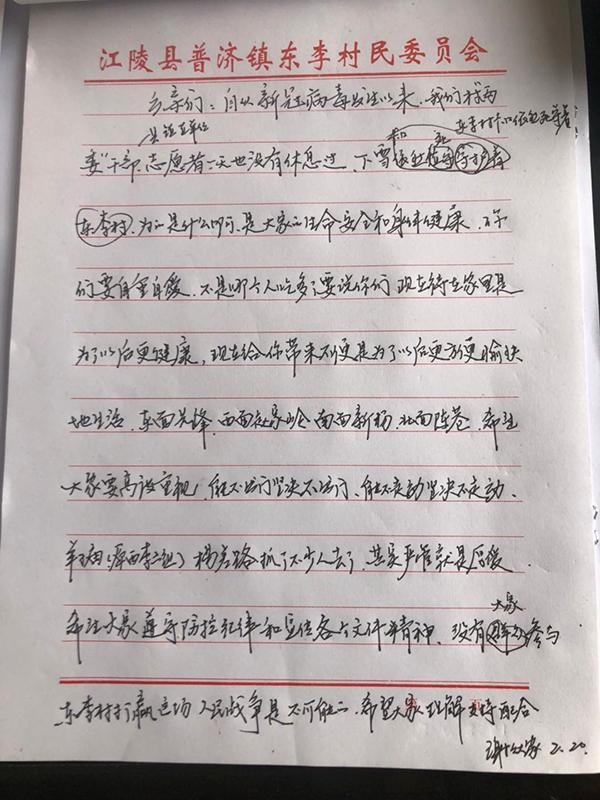 江陵县普济镇东李村民委员会
乡亲们：自从新冠病毒发生以来，我们村两
东李村
委干部、志愿者一天也没有休息过，下雪
东李村，为的是什么，是大家的生命安全和身体健康，你
们要自重自爱，不是哪个人吃多了要说你们，现在待在家里是
为了以后更健康，现在给你带来不便是为了以后更方便更愉快
地生活，东面先锋，西面 南面新杨，北面陈巷，希望
大家要高度重视，能不出门坚决不出门，能不走动坚决不走动，
抓了不少人去了，其实严准就是厚爱，
大家
希望大家遵守防控纪律和各个文件精神，没有 参与
东李村打赢这场人民战争是不可能的，希望大家理解支持配合
2.20.